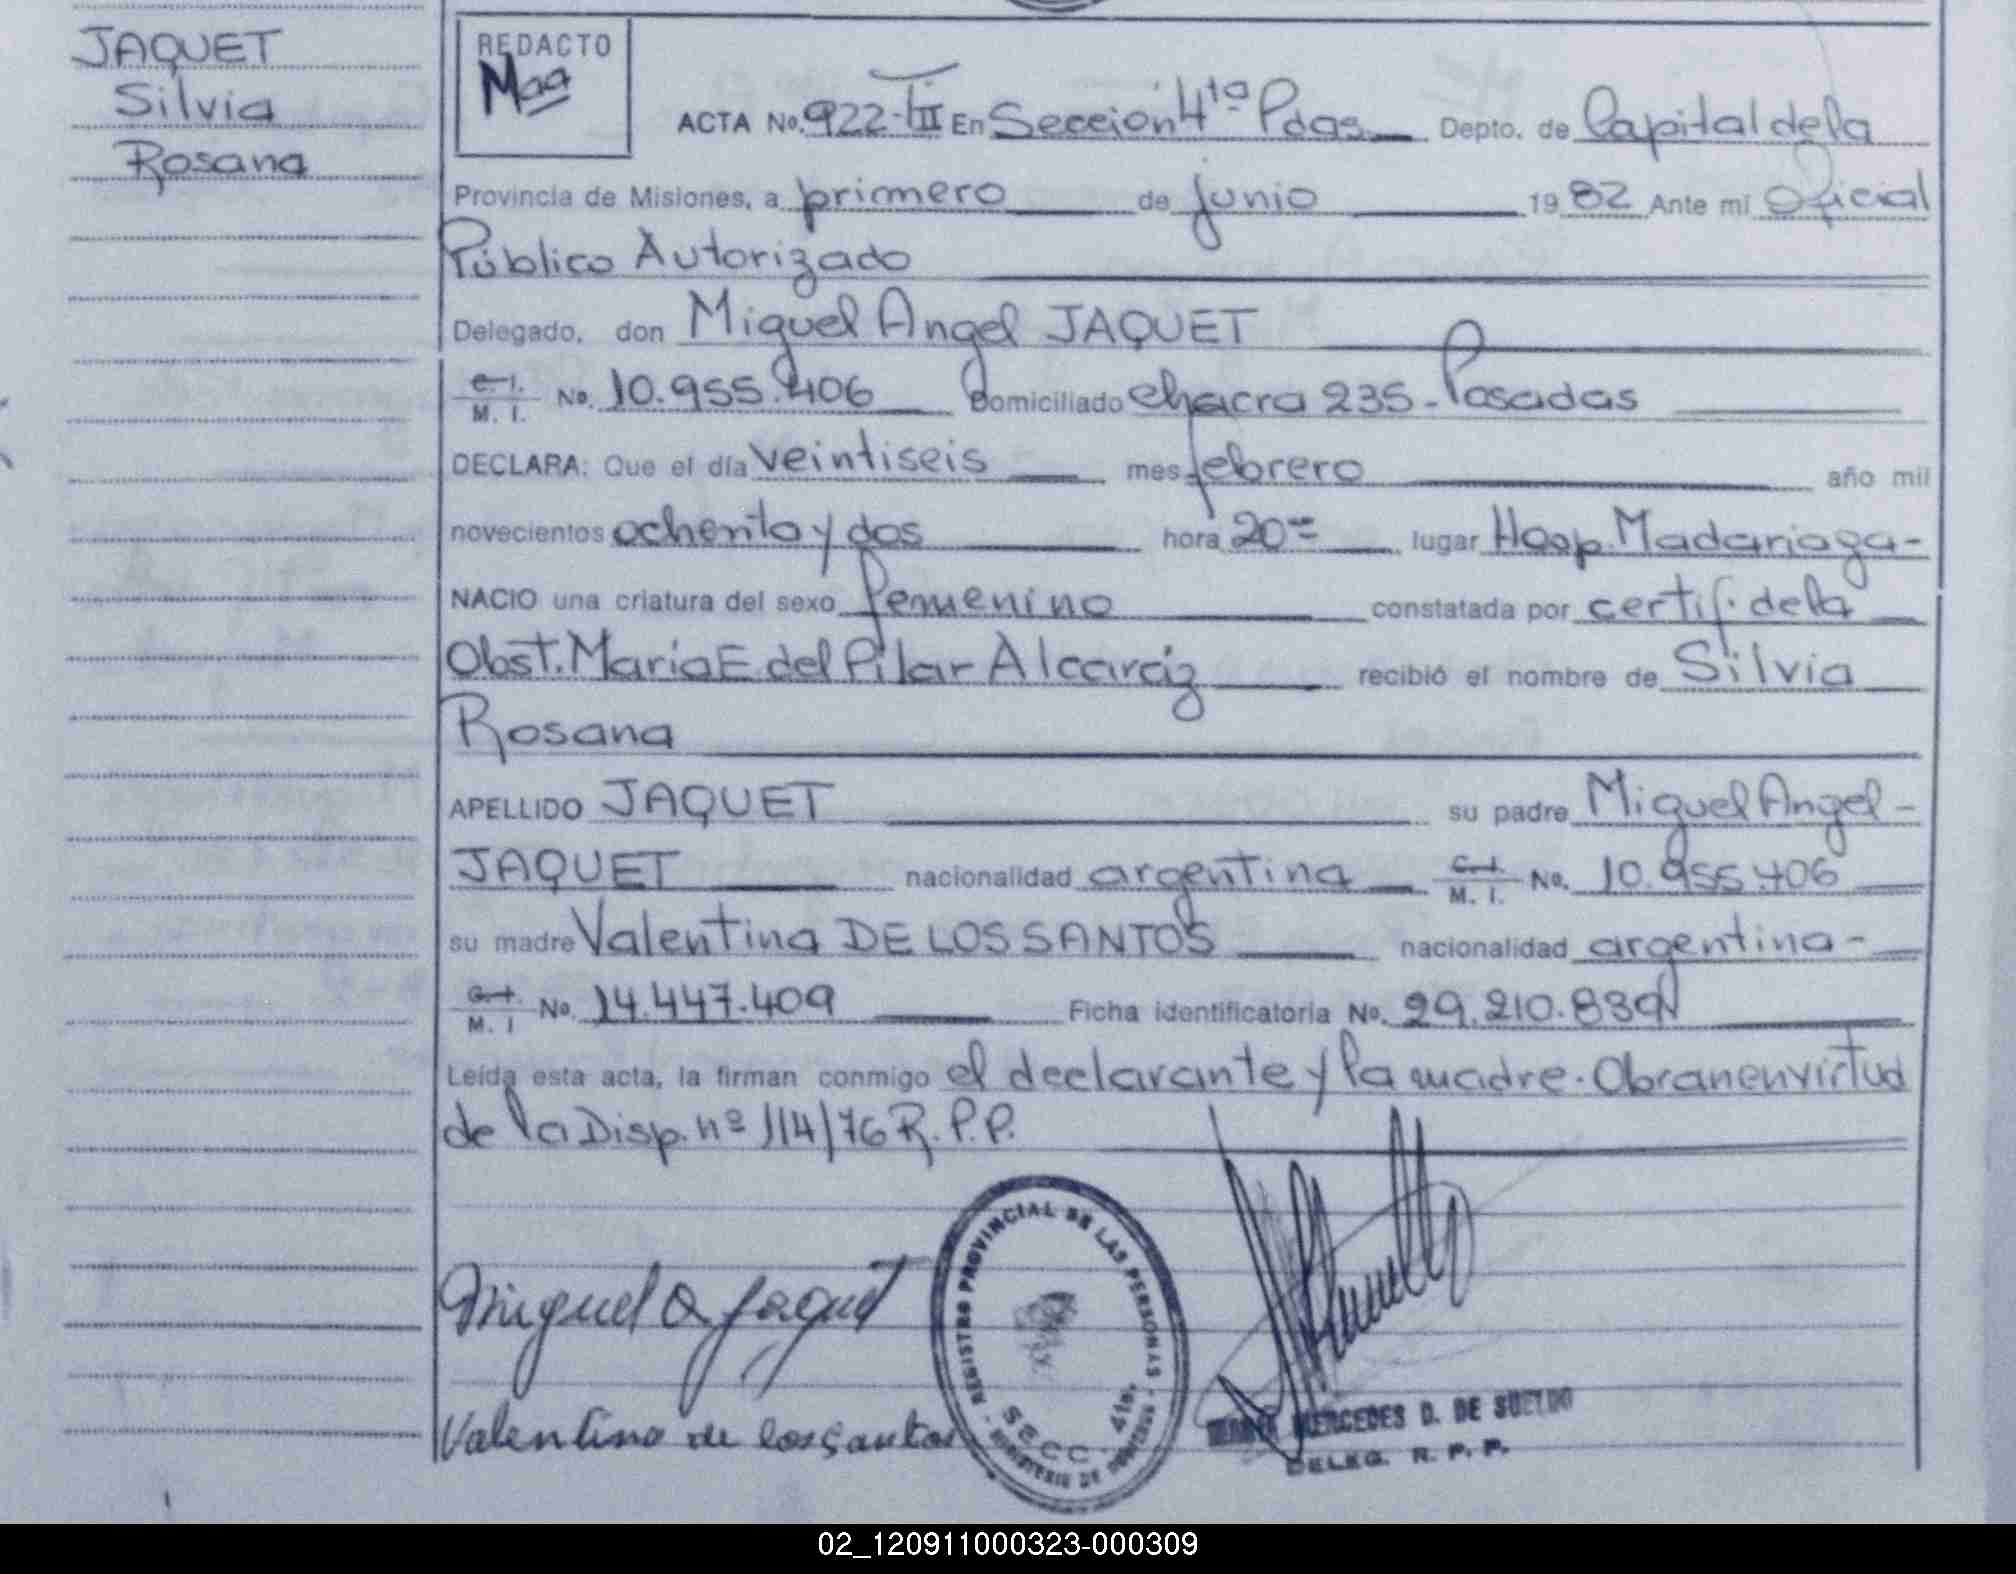 JAQUET
Silvia
Rosana
REDACTO
Maa
ACTA No. 922-TIII En Sección 4ta Pdas. Depto. de Capital de la
Provincia de Misiones, a primero de junio 1982 Ante mi Oficial
Público Autorizado
Delegado, don Miguel Angel JAQUET
C. I. M. I. No. 10.955.406 Domiciliado chacra 235-Posadas
DECLARA: Que el día veintiseis mes febrero año mil
novecientos ochenta y dos hora 20 lugar Hosp. Madariaga-
NACIO una criatura del sexo femenino constatada por certif. de la
Obst. Maria E. del Pilar Alcaráz recibió el nombre de Silvia
Rosana
APELLIDO JAQUET su padre Miguel Angel-
JAQUET nacionalidad argentina C. I. M. I. No. 10.955.406
su madre Valentina DE LOS SANTOS nacionalidad argentina-
C. I. M. I No. 14.447.409 Ficha identificatoria No. 29.210.839
Leída esta acta, la firman conmigo el declarante y la madre. Obran en virtud
de la Disp. nº 114/76 R.P.P.
Miguel A Jaquet
Valentina de los Santos
REGISTRO PROVINCIAL DE LAS PERSONAS - MINISTERIO DE GOBIERNO -
SECC. 4ta.
MERCEDES D. DE SUELDO
DELEG. R. P. P.
02_120911000323-000309